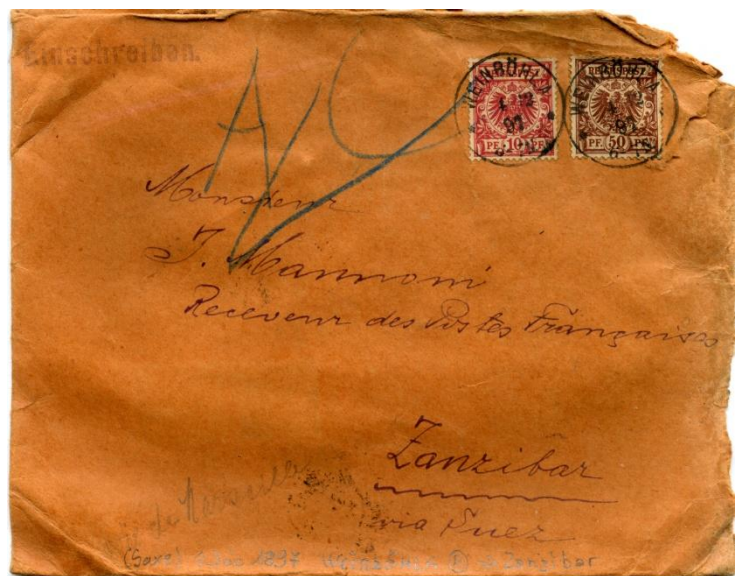 Einschreiben.
WEINBÖHLA
REICHSPOST
PF 10 PF
WEINBÖHLA
REICHSPOST
PF 50 PF
Monsieur
J. Mannoni
Receveur des Postes Françaises
Zanzibar
via Suez
(Saxe) 1897 Zanzibar